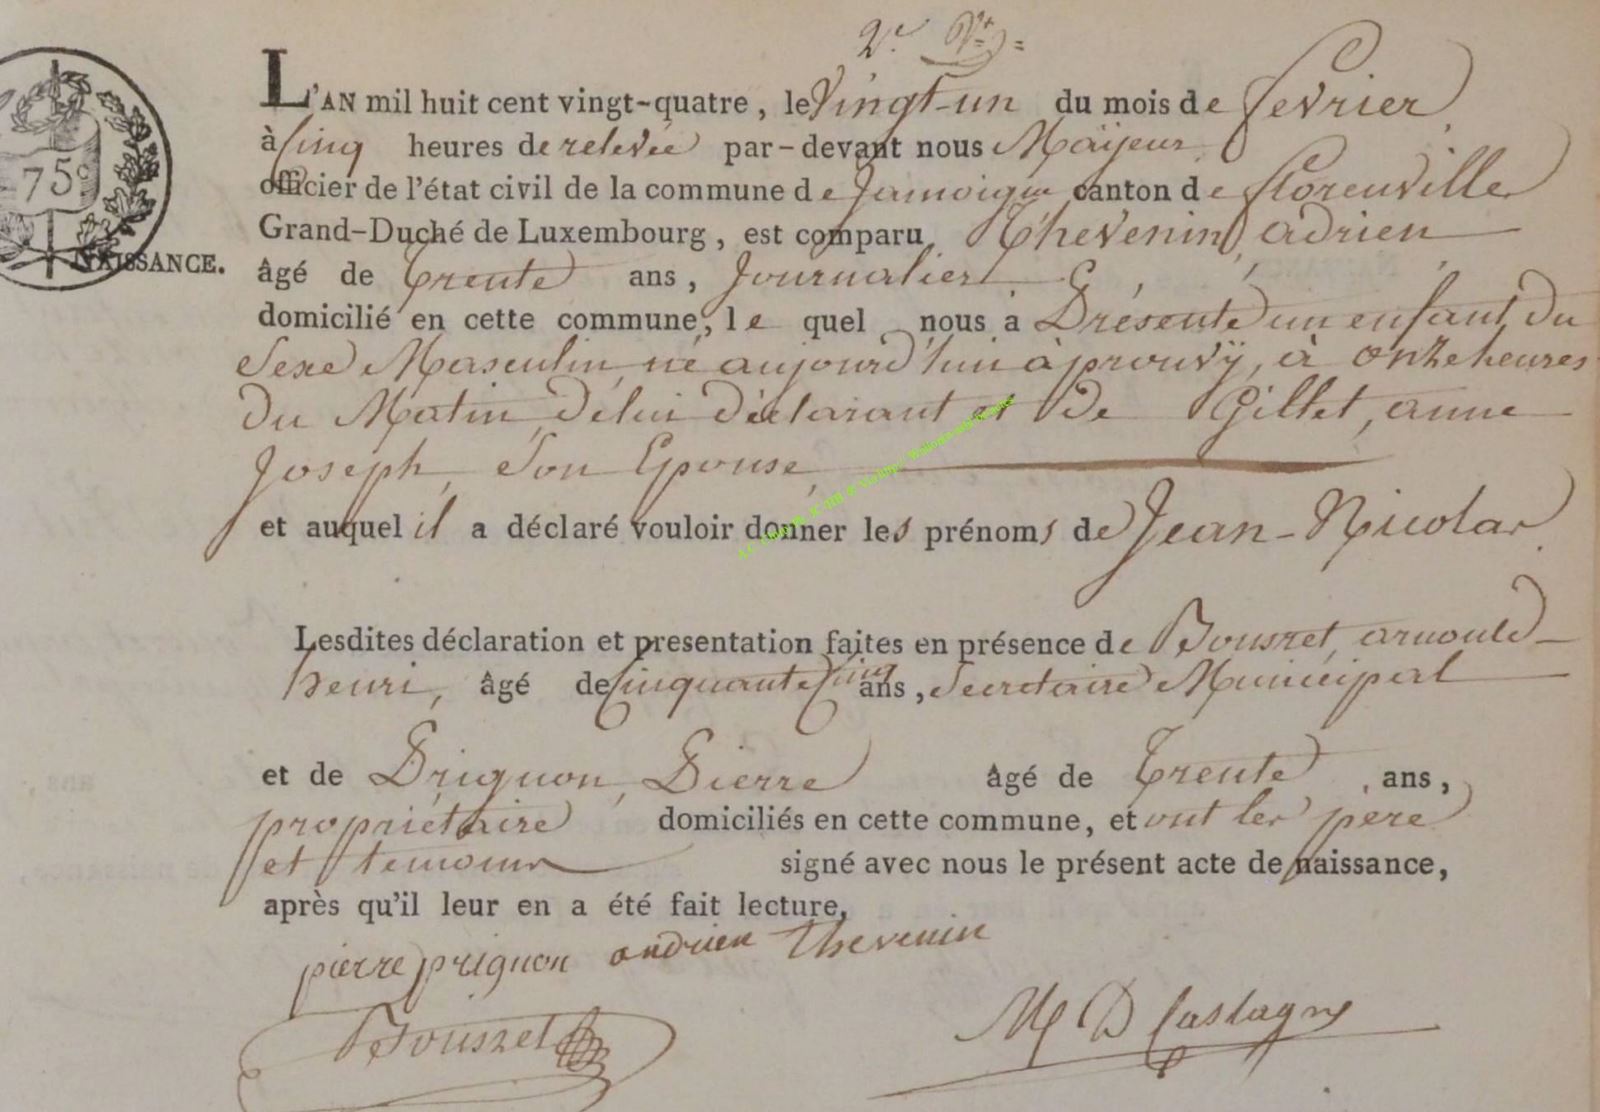 2e. Vt. =
L'AN mil huit cent vingt-quatre, le Vingt-un du mois de fevrier
à Cinq heures de relevée par-devant nous Maÿeur
officier de l'état civil de la commune de Jamoigne canton de florenville
Grand-Duché de Luxembourg, est comparu Thevenin, adrien
75c
NAISSANCE.
âgé de Trente ans, Journalier
domicilié en cette commune, le quel nous a Présenté un enfant du
Sexe Masculin, né aujourd'hui à prouvÿ, à onze heures
du Matin, de lui déclarant et De Gillet, anne
Joseph, Son Epouse,
et auquel il a déclaré vouloir donner les prénoms de Jean-Nicolas
Lesdites déclaration et presentation faites en présence de Bouszet, arnould
henri, âgé de Cinquante Cinq ans, Secretaire Municipal
et de Prignon, Pierre âgé de Trente ans,
propriétaire domiciliés en cette commune, et ont les père
et temoins signé avec nous le présent acte de naissance,
après qu'il leur en a été fait lecture.
pierre prignon andrien thevenin
Bouszet
M D Castagne